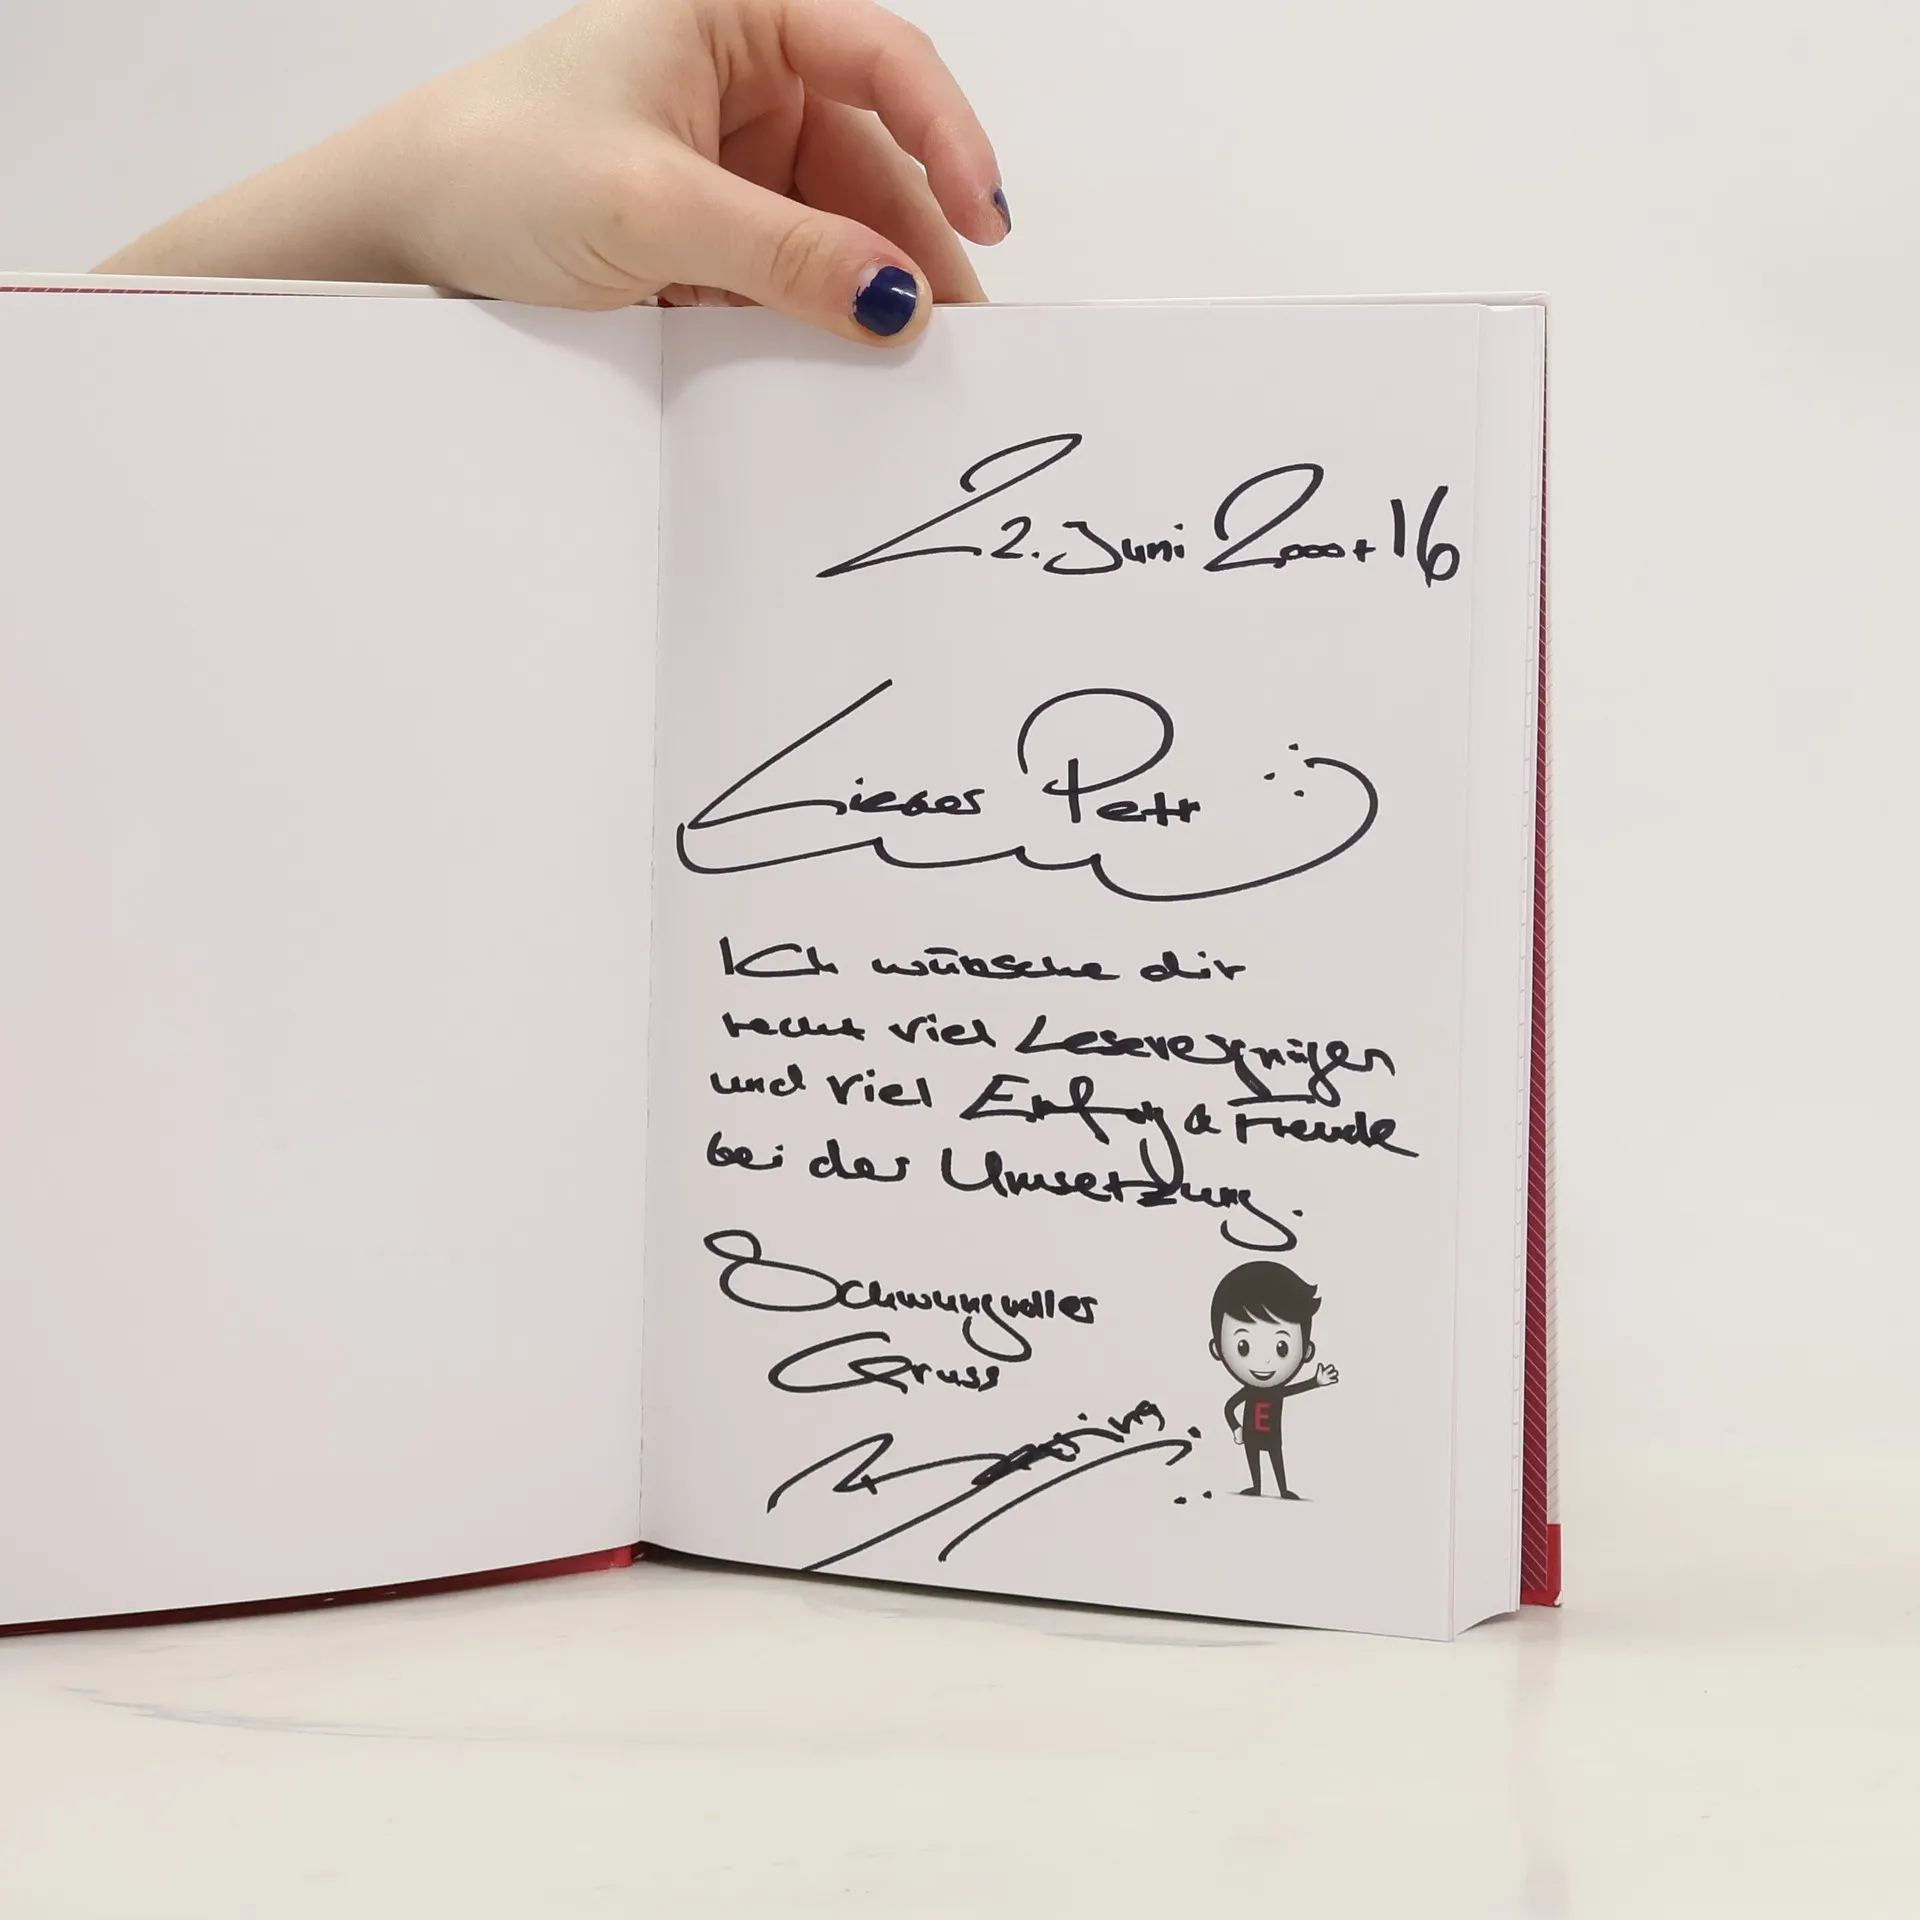 22. Juni 2000+16
Lieber Petr
Ich wünsche dir
recht viel Lesevergnügen
und viel Erfolg & Freude
bei der Umsetzung.
Schwungvoller
Gruss
E